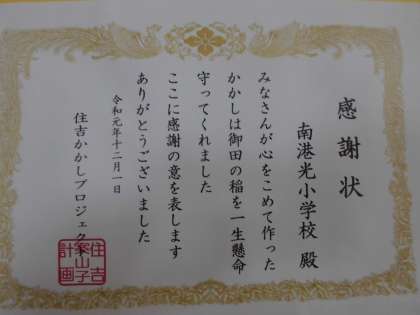 感謝状
南港光小学校 殿
みなさんが心をこめて作った
かかしは御田の稲を一生懸命
守ってくれました
ここに感謝の意を表します
ありがとうございました
令和元年十二月一日
住吉かかしプロジェクト
住吉
案山子
計画